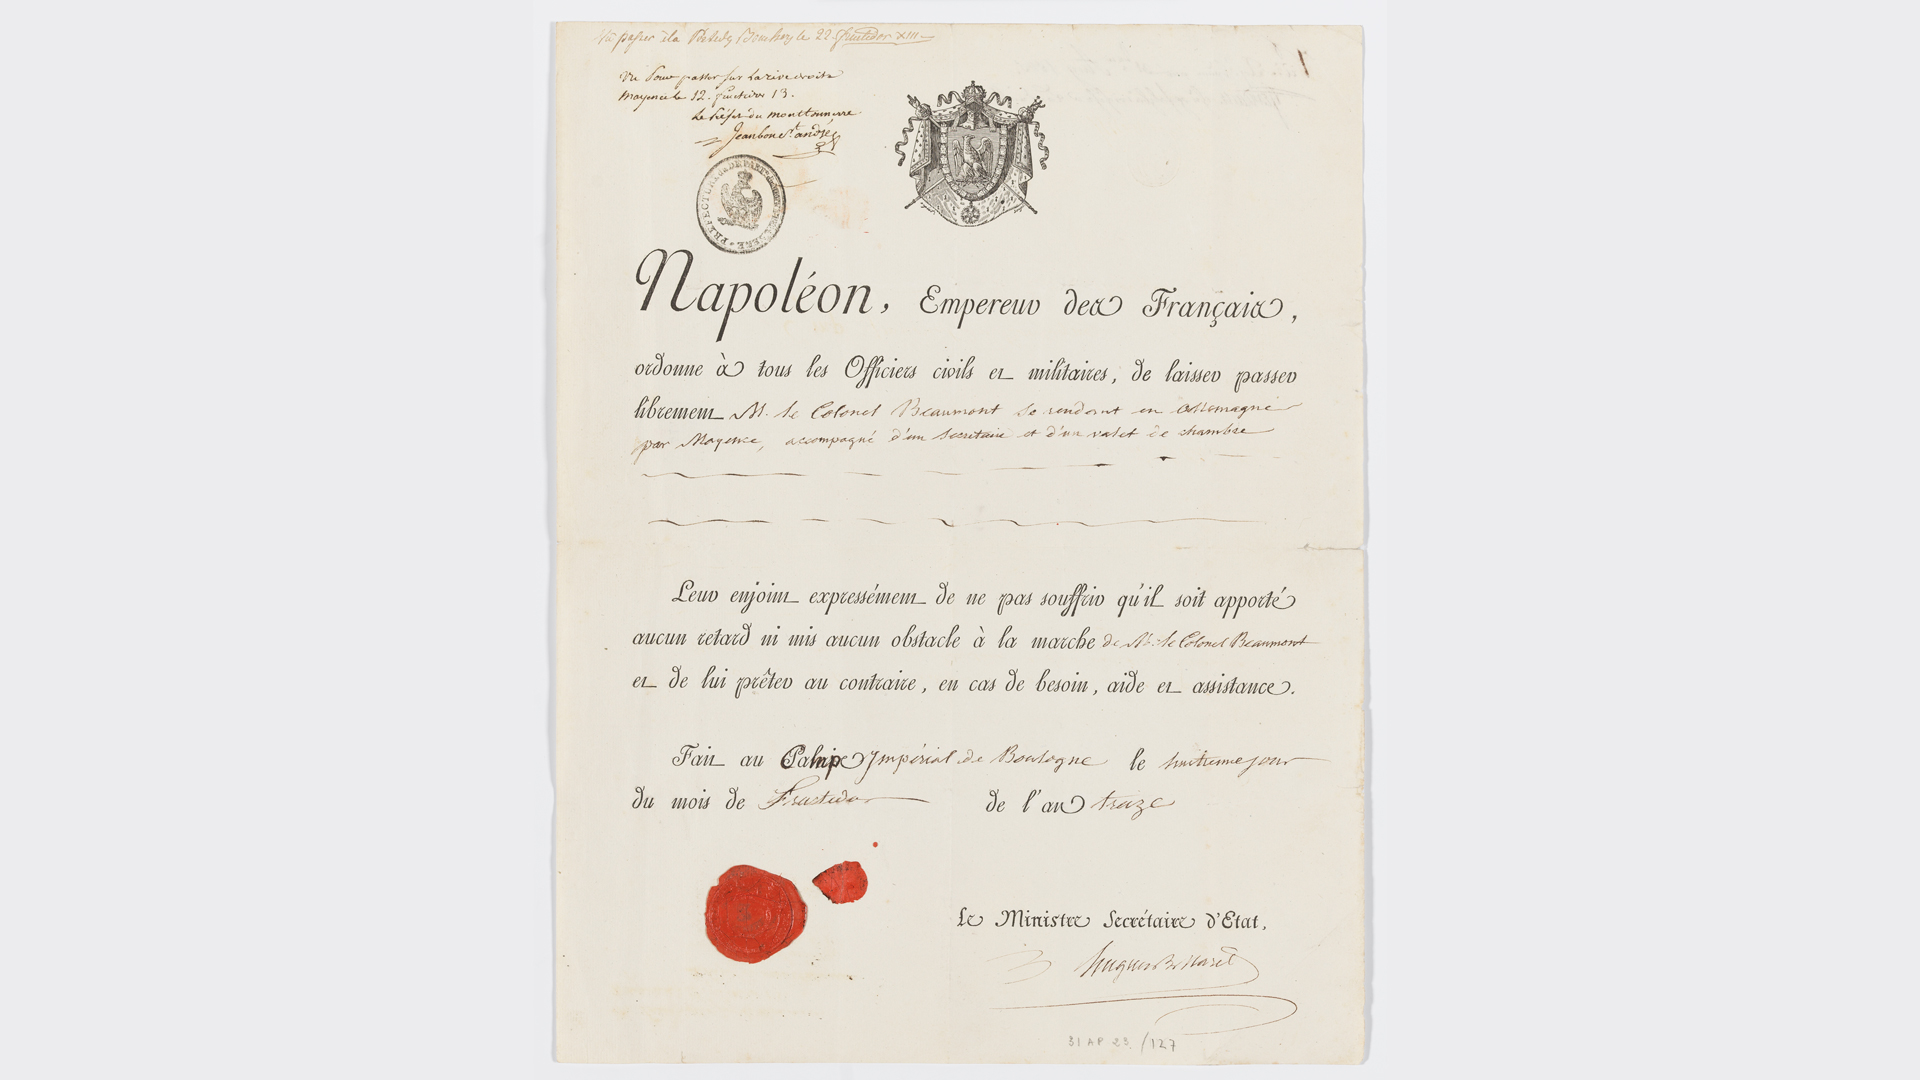 Vu passer à la
le 22 fructidor XIII
Vu Pour passer sur la rive droite
mayence le 12. fructidor 13.
Le Préfet du monttonnerre
Jeanbon St. andré
PREFECTURE DU DEPART.
Napoléon, Empereur des Français,
ordonne à tous les Officiers civils et militaires, de laisser passer
librement M. le Colonel Beaumont se rendant en Allemagne
par Mayence, accompagné d'un Secrétaire et d'un valet de chambre
Leur enjoint expressément de ne pas souffrir qu'il soit apporté
aucun retard ni mis aucun obstacle à la marche de M. le Colonel Beaumont
et de lui prêter au contraire, en cas de besoin, aide et assistance.
Fait au Camp Impérial de Boulogne le huitieme jour
du mois de Fructidor de l'an treize
Le Ministre Secrétaire d'Etat,
Hugues B. Maret
31 AP 23. /127